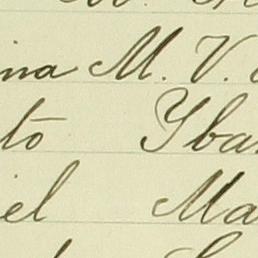 ina M. V.
to Yba
iel Ma